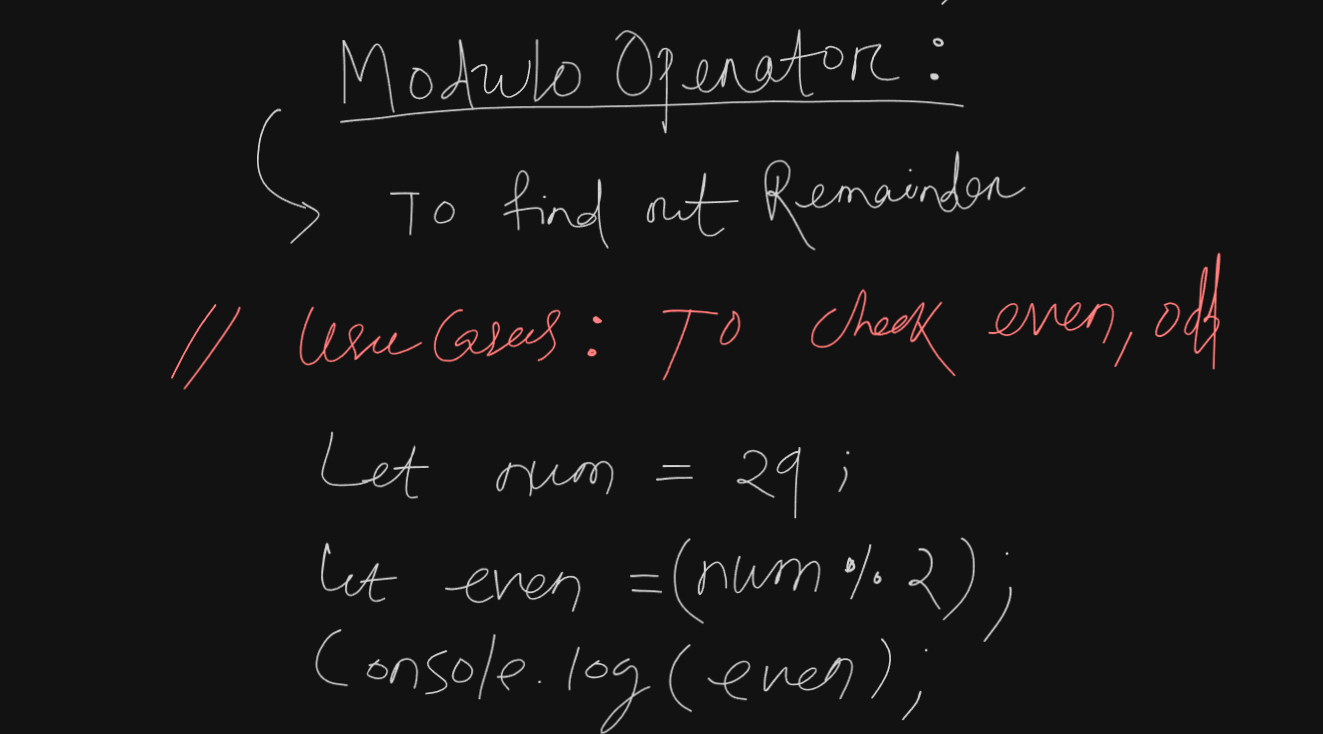 Modulo Operator :
To find out Remainder
// Use Cases : To check even, odd
Let num = 29 ;
Let even = (num % 2) ;
Console.log(even) ;